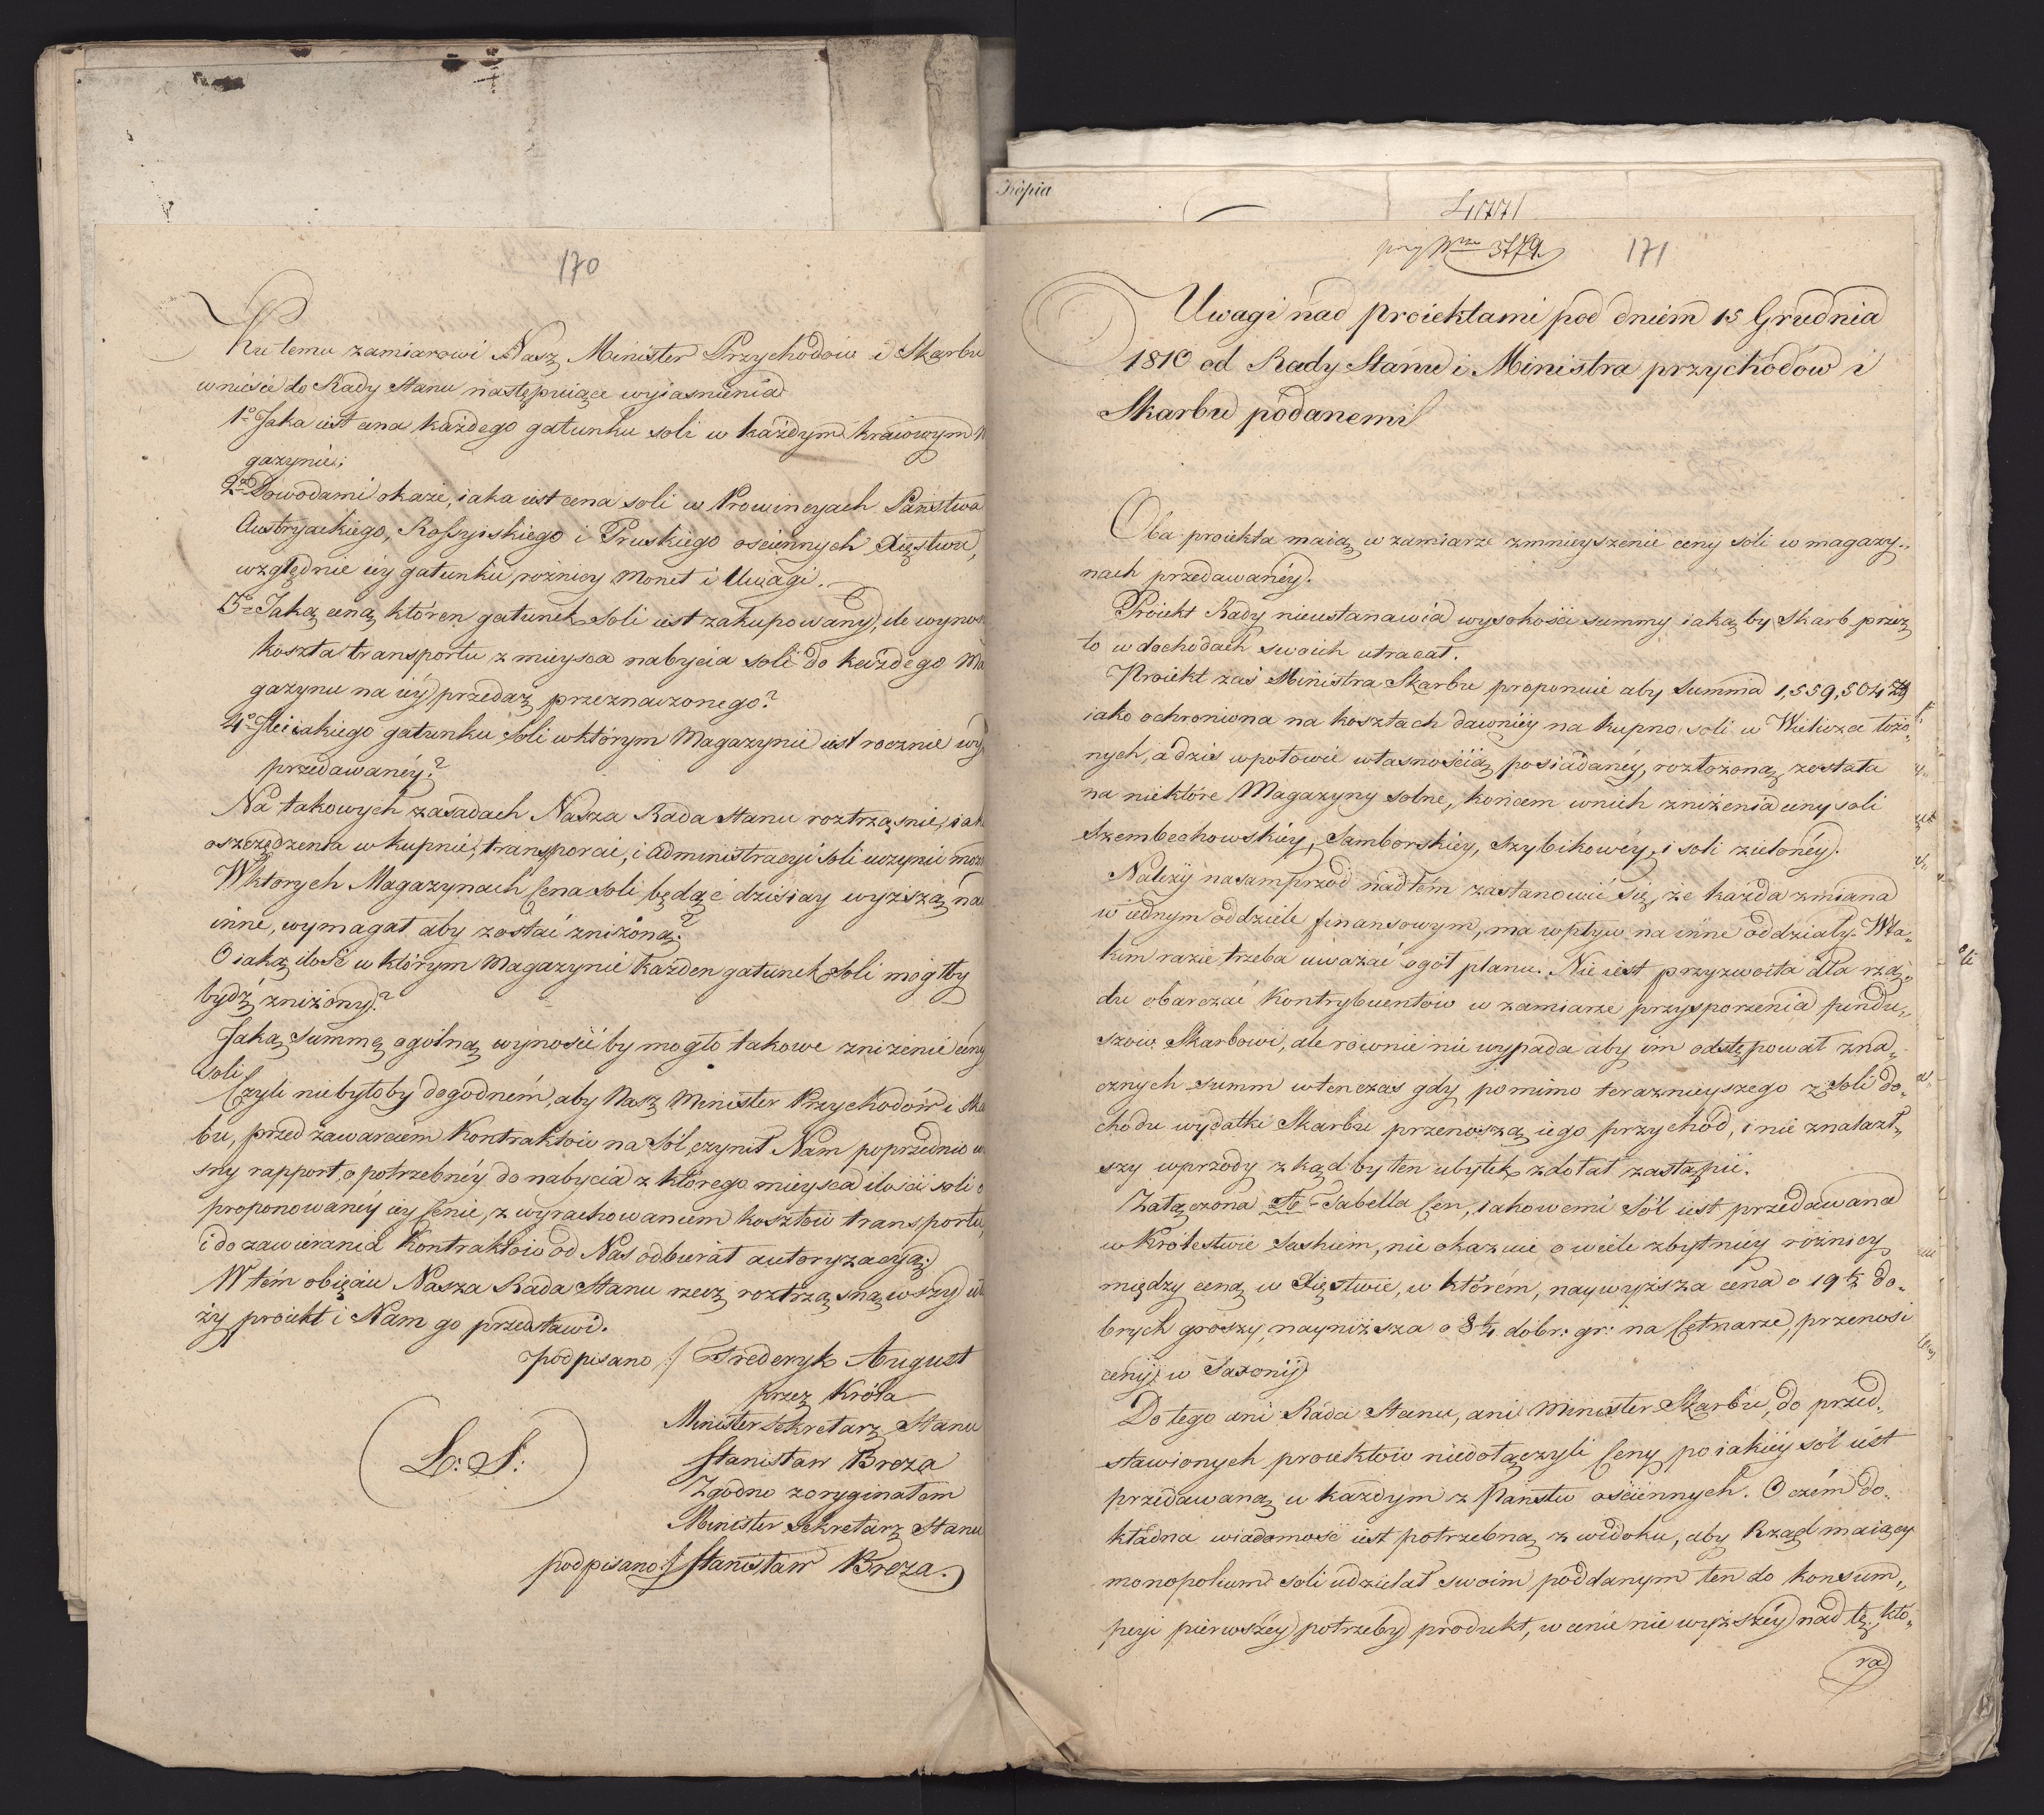 170
Ku temu zamiarowi Nasz Minister Przychodow i Skarbu
wniesie do Rady Stanu następuiące wyiasnienia
1º Jaka iest cena każdego gatunku soli w każdym kraiowym
gazynie;
2º Dowodami okaże, iaka iest cena soli w Prowincyach Państwa
Austryackiego, Rossyiskiego i Pruskiego osciennych Xięstwu,
względnie iey gatunku, roznicy Monet i Uwagi.
3º Jaką ceną, któren gatunek Soli iest zakupowany, ile wynos
koszta transportu z mieysca nabycia soli do każdego Ma
gazynu na iéy przedaż przeznaczonego?
4º Ile i iakiego gatunku Soli w którym Magazynie iest rocznie wy
przedawanéy?
Na takowych zasadach Nasza Rada Stanu roztrząsnie, iak
oszczędzenia w kupnie, transporcie, i Administracyi Soli uczynić moż
Wktorych Magazynach Cena soli będąc dzisiay wyzszą na
inne, wymagał aby zostać zniżoną?
O iaką ilość w którym Magazynie każden gatunek Soli mogłby
bydź zniżony?
Jaką Summę ogólną wynosić by mogło takowe zniżenie ceny
Soli
Czyli niebyłoby dogodném, aby Nasz Minister Przychodów i Ska
bu, przed zawarciem Kontraktow na Sól czynił Nam poprzednio
sny rapport, o potrzebnéy do nabycia z którego mieysca ilosci soli o
proponowanéy iéy Cenie, z wyrachowaniem kosztow transportu,
i do zawierania Kontraktow od Nas odbierał autoryzacyą;
W tém obięciu Nasza Rada Stanu rzecz roztrząsnąwszy uło
ży proiekt i Nam go przedstawi.
podpisano /: Frederyk August
przez Króla
Minister Sekretarz Stanu
L: S: Stanisław Breza
Zgodno z oryginałem
Minister Sekretarz Stanu
podpisano:/ Stanisław Breza.
Kópia
przy Nrze 3779.
171
Uwagi nad proiektami pod dniem 15 Grudnia
1810 od Rady Stanu i Ministra przychodów i
Skarbu podanemi
Oba proiekta maią w zamiarze zmnieyszenie ceny soli w magazy„
nach przedawanéy.
Proiekt Rady nieustanawia wysokości summy iaką by Skarb przez
to w dochodach swoich utracał.
Proiekt zaś Ministra Skarbu proponuie aby Summa 1,559,504
iako ochroniona na kosztach dawniéy na kupno soli w Wieliczce łożo„
nych, a dziś w połowie własnością posiadanéy, rozłożoną została
na niektóre Magazyny solne, końcem w nich zniżenia ceny soli
Szembechowskiéy, Samborskiéy, Szybikowéy, i soli zielonéy.
Należy nasamprzód nad tem zastanowić się, że każda zmiana
w iednym oddziele finansowym, ma wpływ na inne oddziały. W ta„
kim razie trzeba uważać ogół planu. Nie iest przyzwoita dla rzą„
du obarczać Kontrybuentow w zamiarze przysporzenia fundu„
szow Skarbowi, ale rownie nie wypada aby im odstępował zna„
cznych summ wtenczas gdy pomimo teraznieyszego z Soli do„
chodu wydatki Skarbu przenoszą iego przychód, i nie znalazł„
szy wprzody z kąd by ten ubytek zdołał zastąpić.
Załączona Tabella Cen, iakowemi Sól iest przedawana
w Królestwie Saskiem, nie okazuie o wiele zbytniéy różnicy
między ceną w Xięstwie, w którém, naywyższa cena o 19½ do„
brych groszy, nayniższa o 8¼ dobr: gr: na Cetnarze, przenosi
ceny w Saxonij
Do tego ani Rada Stanu, ani Minister Skarbu, do przed„
stawionych proiektow niedołączyli Ceny po iakiéy sól iest
przedawaną w każdym z Państw ościennych. O czém do„
kładna wiadomość iest potrzebną z widoku, aby Rząd maiący
monopolium soli udzielał swoim poddanym ten do konsum„
pcyi pierwszéy potrzeby produkt, w cenie nie wyższéy nad tę, któ„
ra